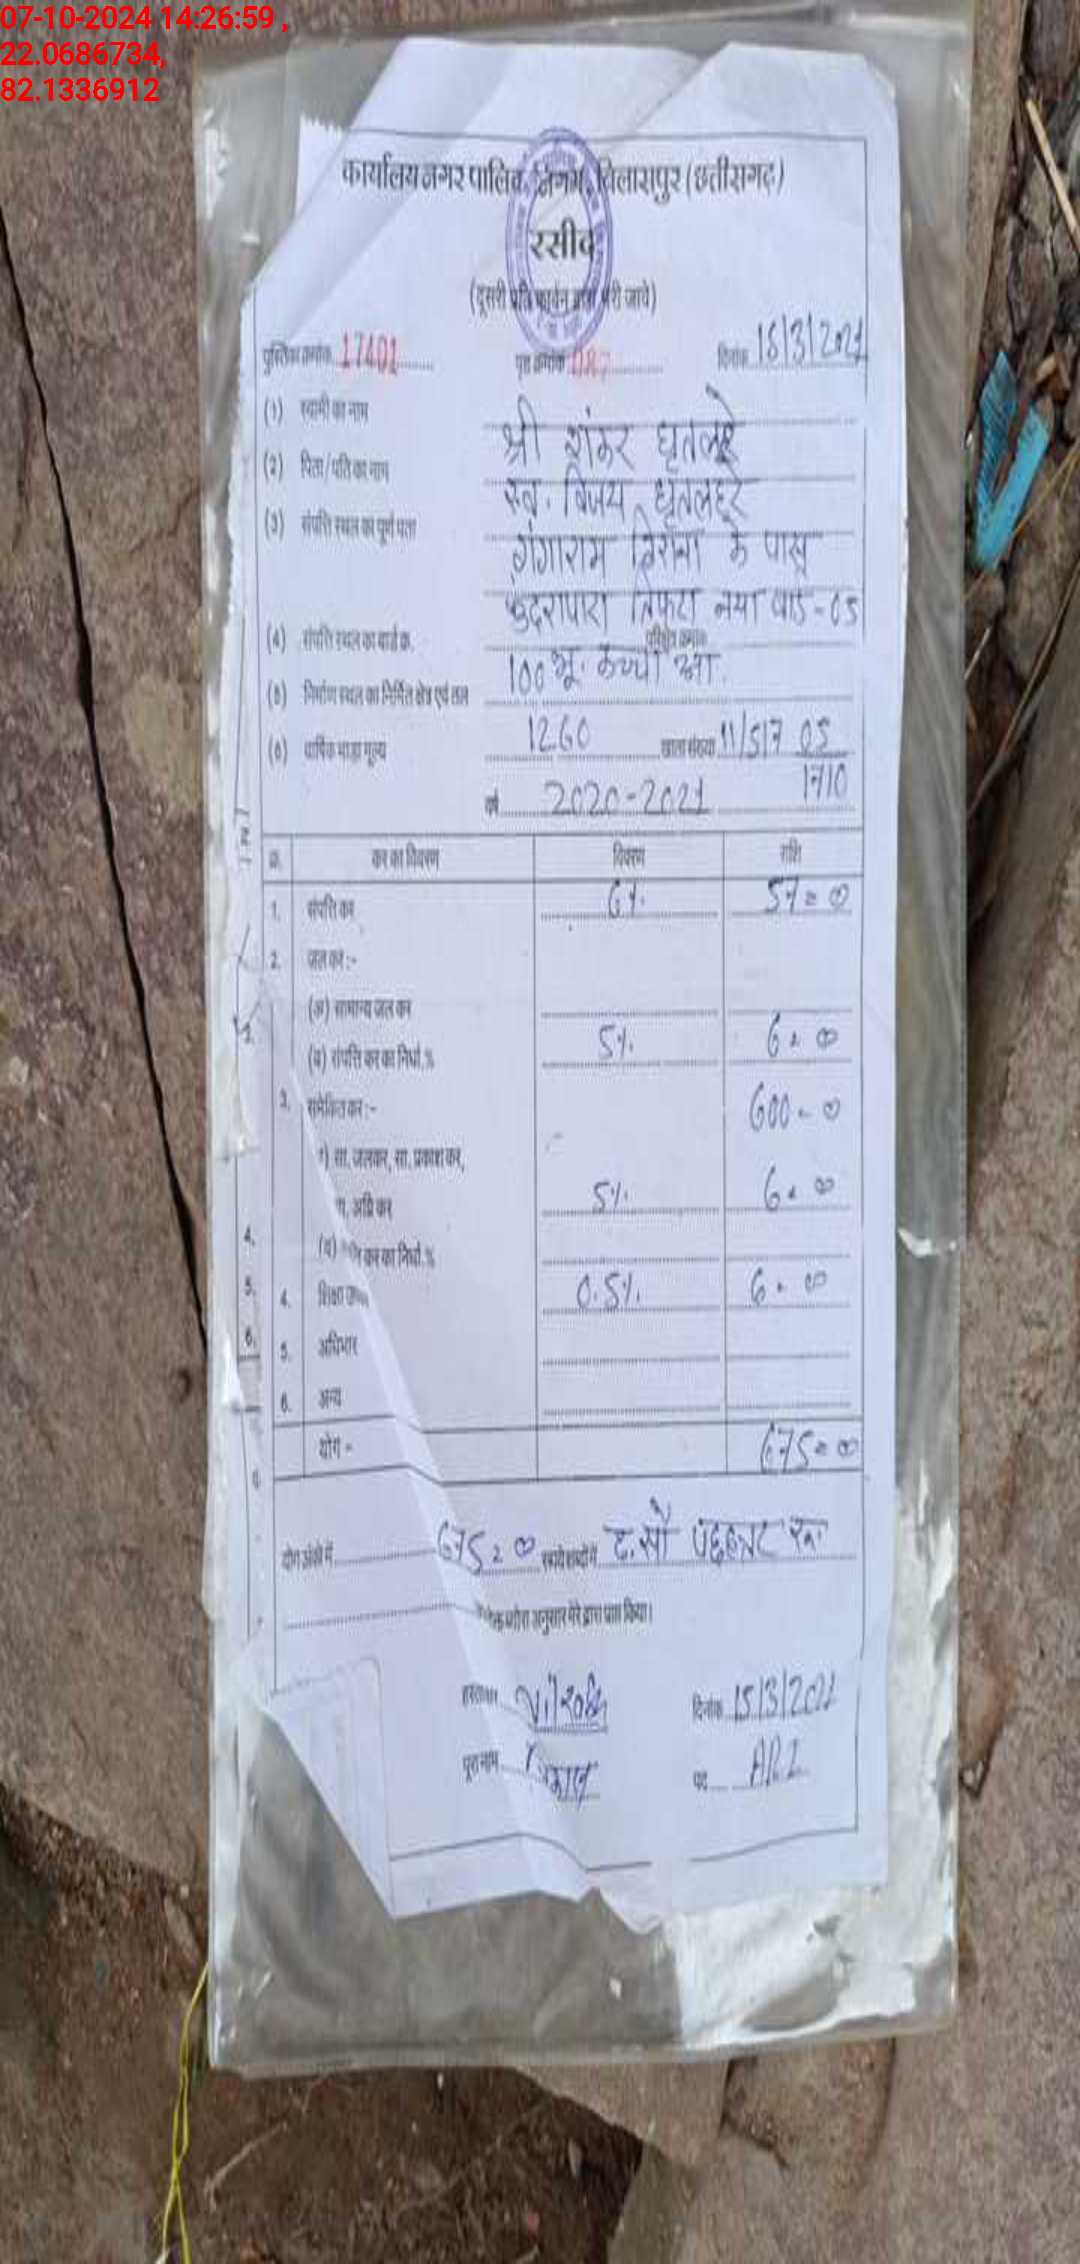 07-10-2024 14:26:59 ,
22.0686734,
82.1336912
कार्यालय नगर पालिक निगम, बिलासपुर (छत्तीसगढ़)
रसीद
(दूसरी प्रति कार्बन द्वारा भरी जाये)
पुस्तिका क्रमांक 17401 पृष्ठ क्रमांक 087 दिनांक 15/3/2021
(1) स्वामी का नाम श्री शंकर घृतलहरे
(2) पिता/पति का नाम स्व. विजय घृतलहरे
(3) संपत्ति स्थल का पूर्ण पता गंगाराम किराना के पास
कुदरापारा तिफरा नया वार्ड-05
(4) संपत्ति स्थल का वार्ड क्र. परिक्षेत्र क्रमांक
100 भू. कच्ची आ.
(5) निर्माण स्थल का निर्मित क्षेत्र एवं तल
(6) वार्षिक भाड़ा मूल्य 1260 खाता संख्या 11/517 05
1710
वर्ष 2020-2021
क्र. कर का विवरण विवरण राशि
1. संपत्ति कर 6%. 57=00
2. जल कर :-
(अ) सामान्य जल कर
(ब) संपत्ति कर का निर्धा.% 5%. 6=00
3. समेकित कर :- 600-00
सा. जलकर, सा. प्रकाश कर,
अग्नि कर 5%. 6=00
(ब) कर का निर्धा.%
4. शिक्षा 0.5%. 6=00
5. अधिभार
6. अन्य
योग - 675=00
योग अंकों में 675=00 रूपये शब्दों में छ.सौ पचहत्तर रू.
ब्यौरा अनुसार मेरे द्वारा प्राप्त किया।
हस्ताक्षर दिनांक 15/3/2021
पूरा नाम पद ARI